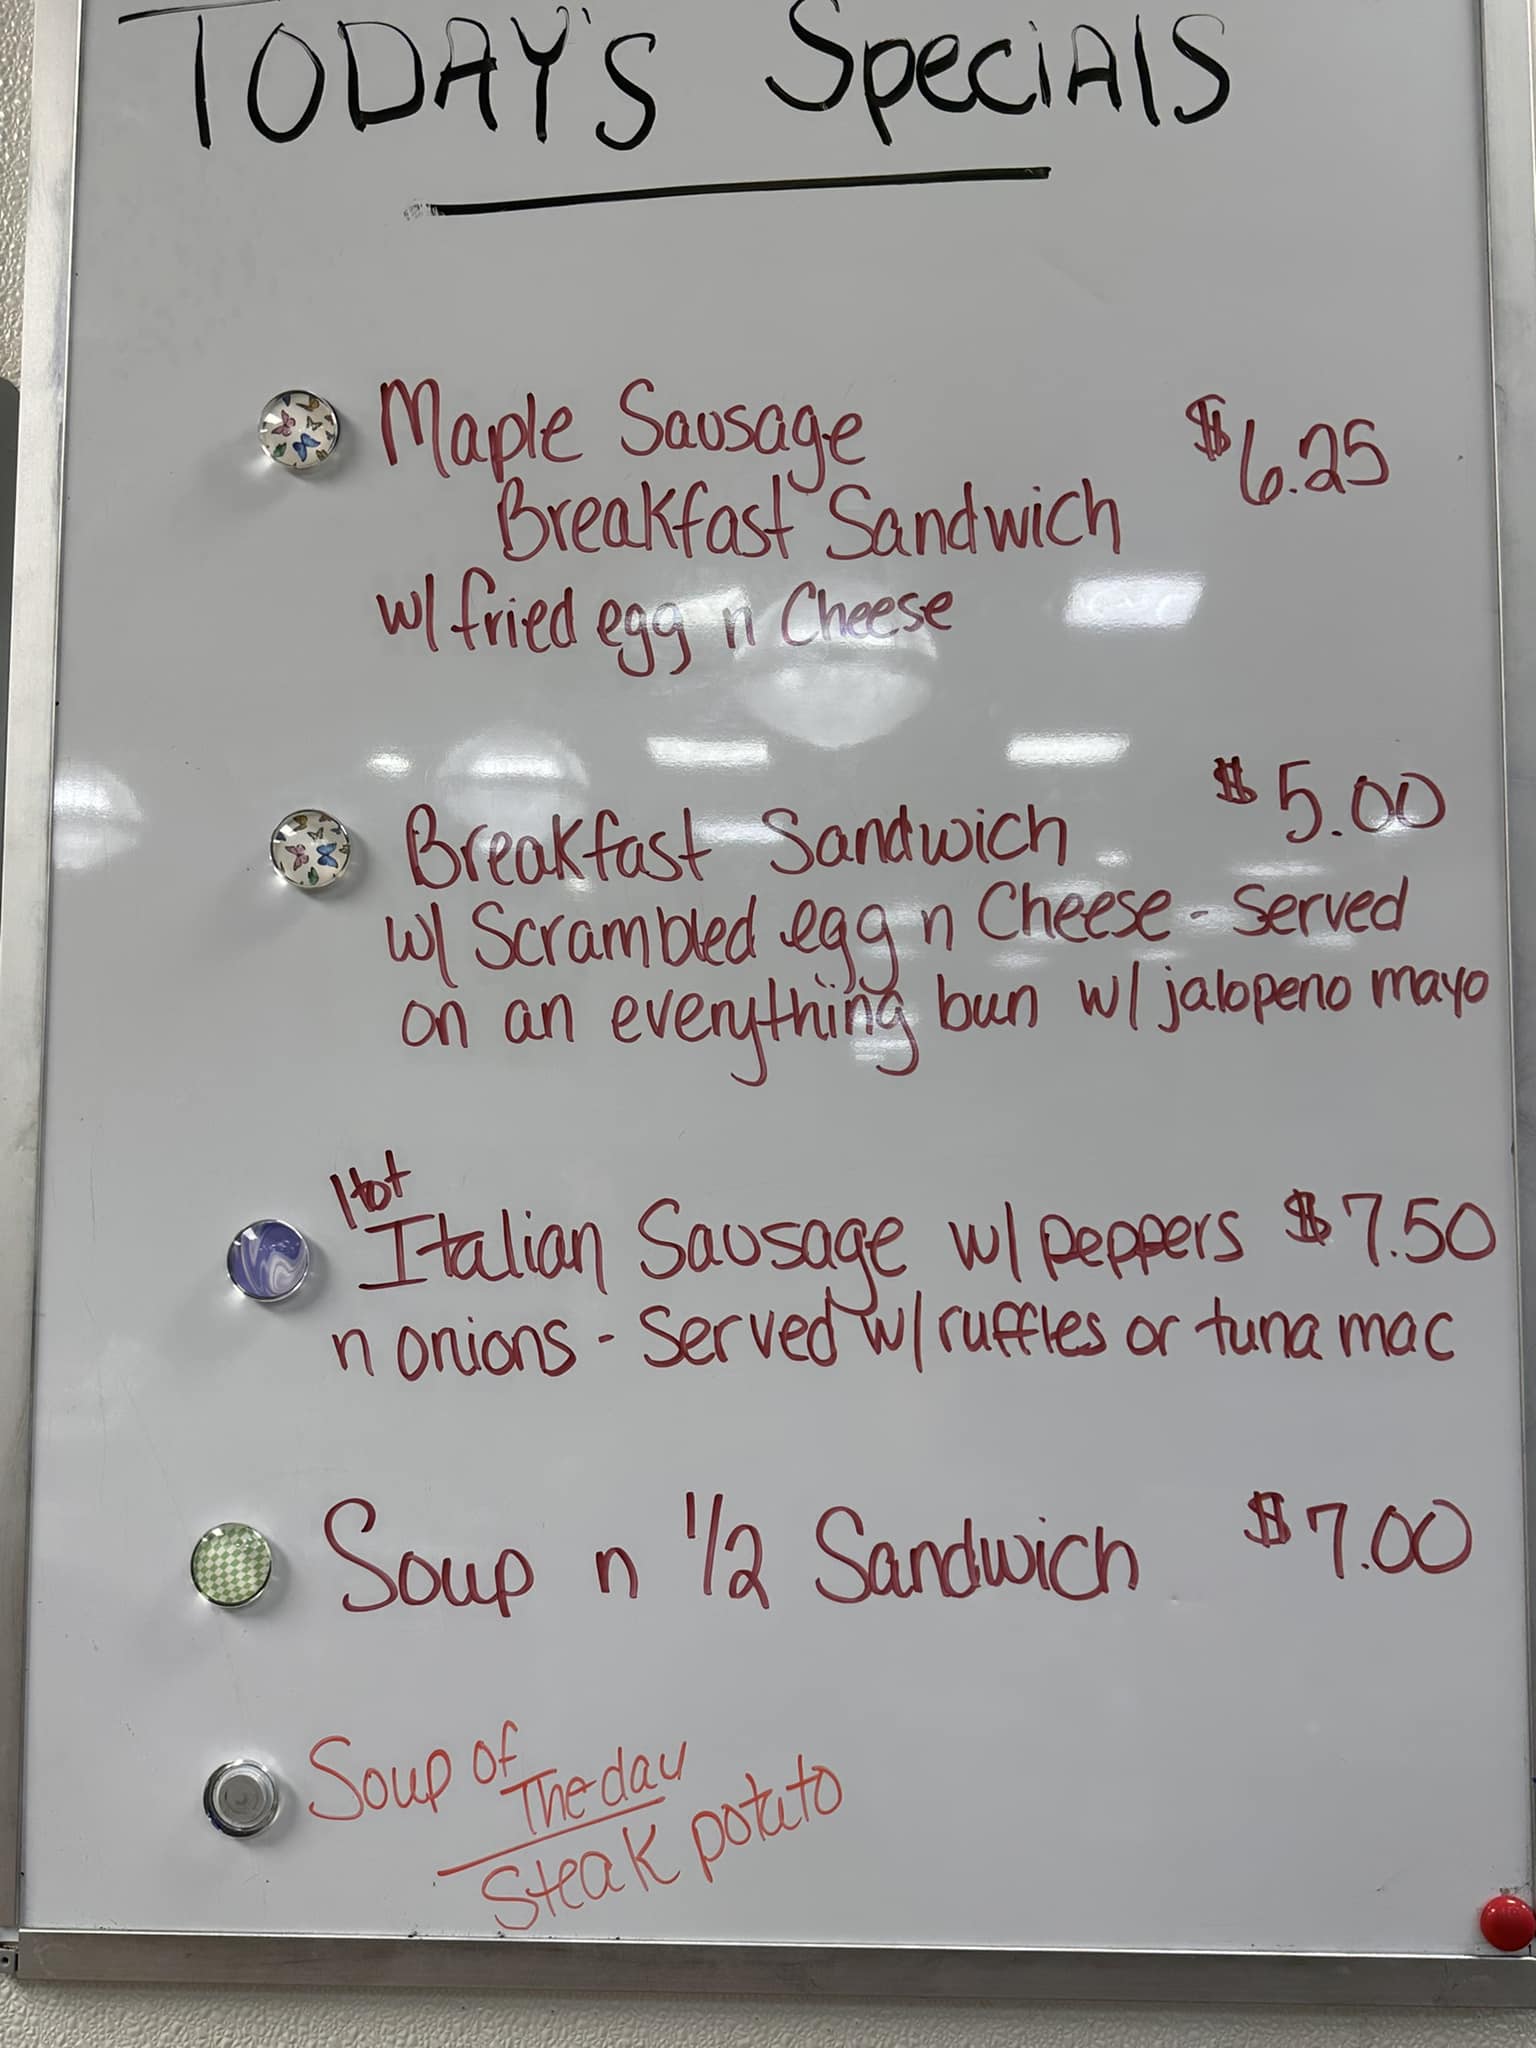 TODAY's Specials
Maple Sausage $6.25
Breakfast Sandwich
w/ fried egg n Cheese
Breakfast Sandwich $5.00
w/ Scrambled egg n Cheese - Served
on an everything bun w/ jalopeno mayo
Hot
Italian Sausage w/ peppers $7.50
n onions - Served w/ ruffles or tuna mac
Soup n 1/2 Sandwich $7.00
Soup of
The day
Steak potato